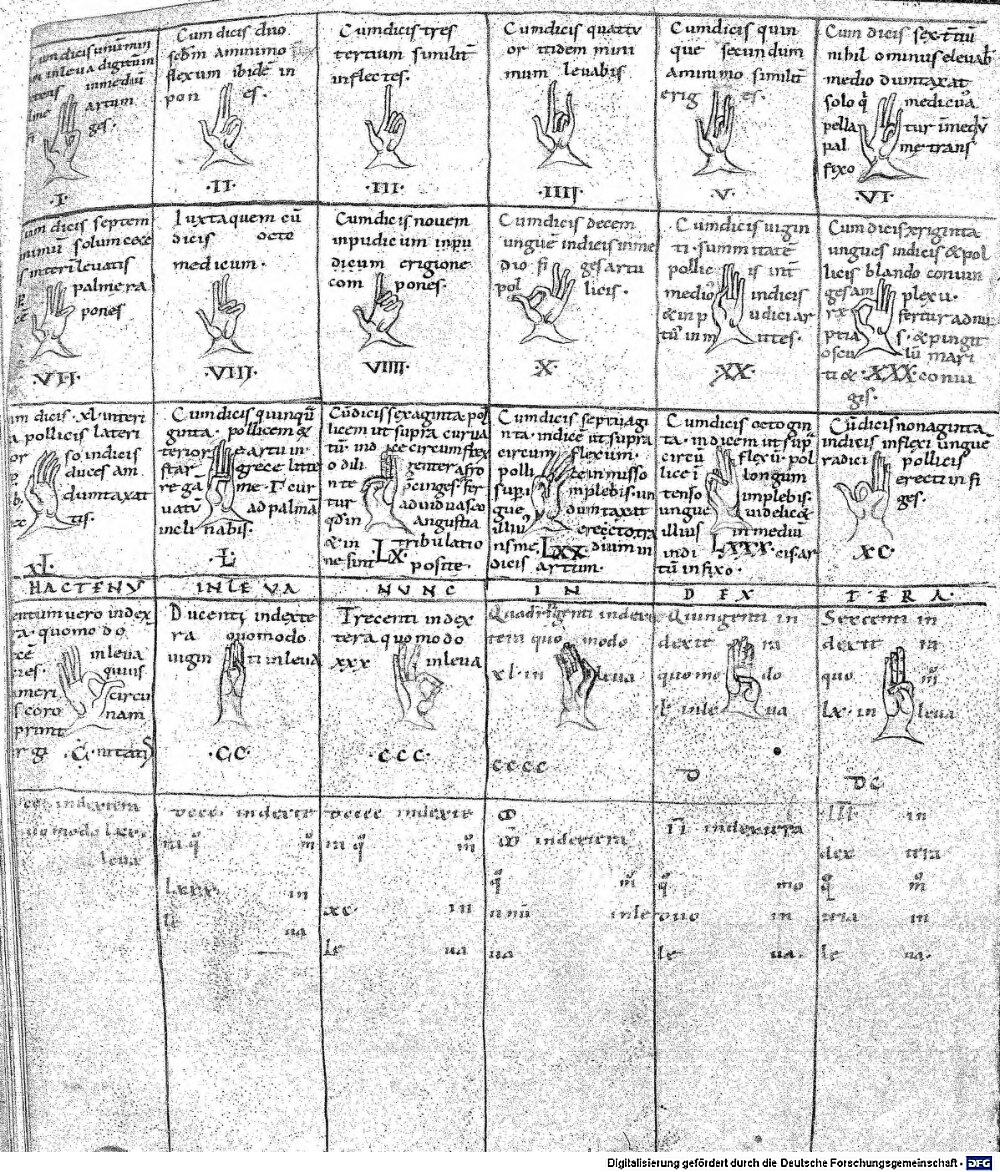 um dicis unum min
in leva digitum
tens in medium
lme artum
ges.
.I.
Cum dicis duo
secdm a minimo
flexum ibidē in
pon es.
.II.
Cum dicis tres
tertium similit
inflectes.
.III.
Cum dicis quattu
or itidem mini
mum levabis
.IIII.
Cum dicis quin
que secundum
a minimo similit
erig es.
.V.
Cum dicis sex tertiū
nihil ominus elevab
medio dumtaxat
solo q medicus
pella tur in medu
pal me trans
fixo
.VI.
um dicis septem
minimū solum cete
s interī levatis
palme ra
pones
.VII.
Iuxta quem cū
dicis octo
medicum.
.VIII.
Cum dicis novem
inpudicum inpu
dicum e regione
com pones.
VIIII.
Cum dicis decem
ungue indicis in me
dio fi ges artu
pol licis.
X.
Cum dicis vigin
ti summitate
pollic is int
medio indicis
& inp udici ar
tū imm ittes.
XX.
Cum dicis triginta
ungues indicis & pol
licis blando coniun
ges am plexu.
fertur ad nu
ptia s. & pingit
oscu lū mari
ti & XXX coniu
gis.
um dicis .xl. interi
a pollicis lateri
or so indicis
duces am
dumtaxat
tis.
XL.
Cum dicis quinqu
ginta. pollicem &
terior e artu in
star grece litte
re ga me .Γ. cur
vatū ad palmā
incli nabis.
.L.
Cū dicis sexaginta pol
licem ut supra curva
tū ind ice circumflex
o dili genter a fro
nte p̄cinges. fer
tur ad viduas eo
qd in angustia
& in LX tribulatio
ne sint posite.
Cum dicis septuagi
nta. indice ut supra
circum flexum.
polli ce inmisso
sup. implebis. un
gue dumtaxat
illius erecto tra
nsme LXX dium in
dicis artum.
Cum dicis octogin
ta. indicem ut supra
circū flexū pol
lice ī longum
tenso implebis.
ungue videlic&
illius in medium
indi LXXX. cis ar
tū infixo.
Cū dicis nonaginta
indicis inflexi ungue
radici pollicis
erecti in fi
ges.
XC.
HACTENUS IN LEVA NUNC IN DEX TERA.
entum vero in dex
ra. quomodo
in leva
quius
circu
s coro nam
print
r gi .C. nitatis
Ducenti in dexte
ra quomodo
vigin ti in leva
.CC.
Trecenti in dex
tera quomodo
xxx in leva
.CCC.
Quadringenti in dexte
tera quo modo
xl. in leva
CCCC
Quingenti in
dexte ra
quomo do
l. in le va
D
Sexcenti in
dexte ra
quo m̄
lx. in leva
DC
cc. in dextera
uomodo lxx.
leva
dccc. in dexte
ra q m̄
lxxx. in
le va
dcccc in dexte
ra q m̄
xc. in
le va
in dextera
q m̄
unū in le
va
II in dextera
q mo
duo in
le va.
III. in
dex tera
q m̄
tria in
le va.
Digitalisierung gefördert durch die Deutsche Forschungsgemeinschaft - DFG